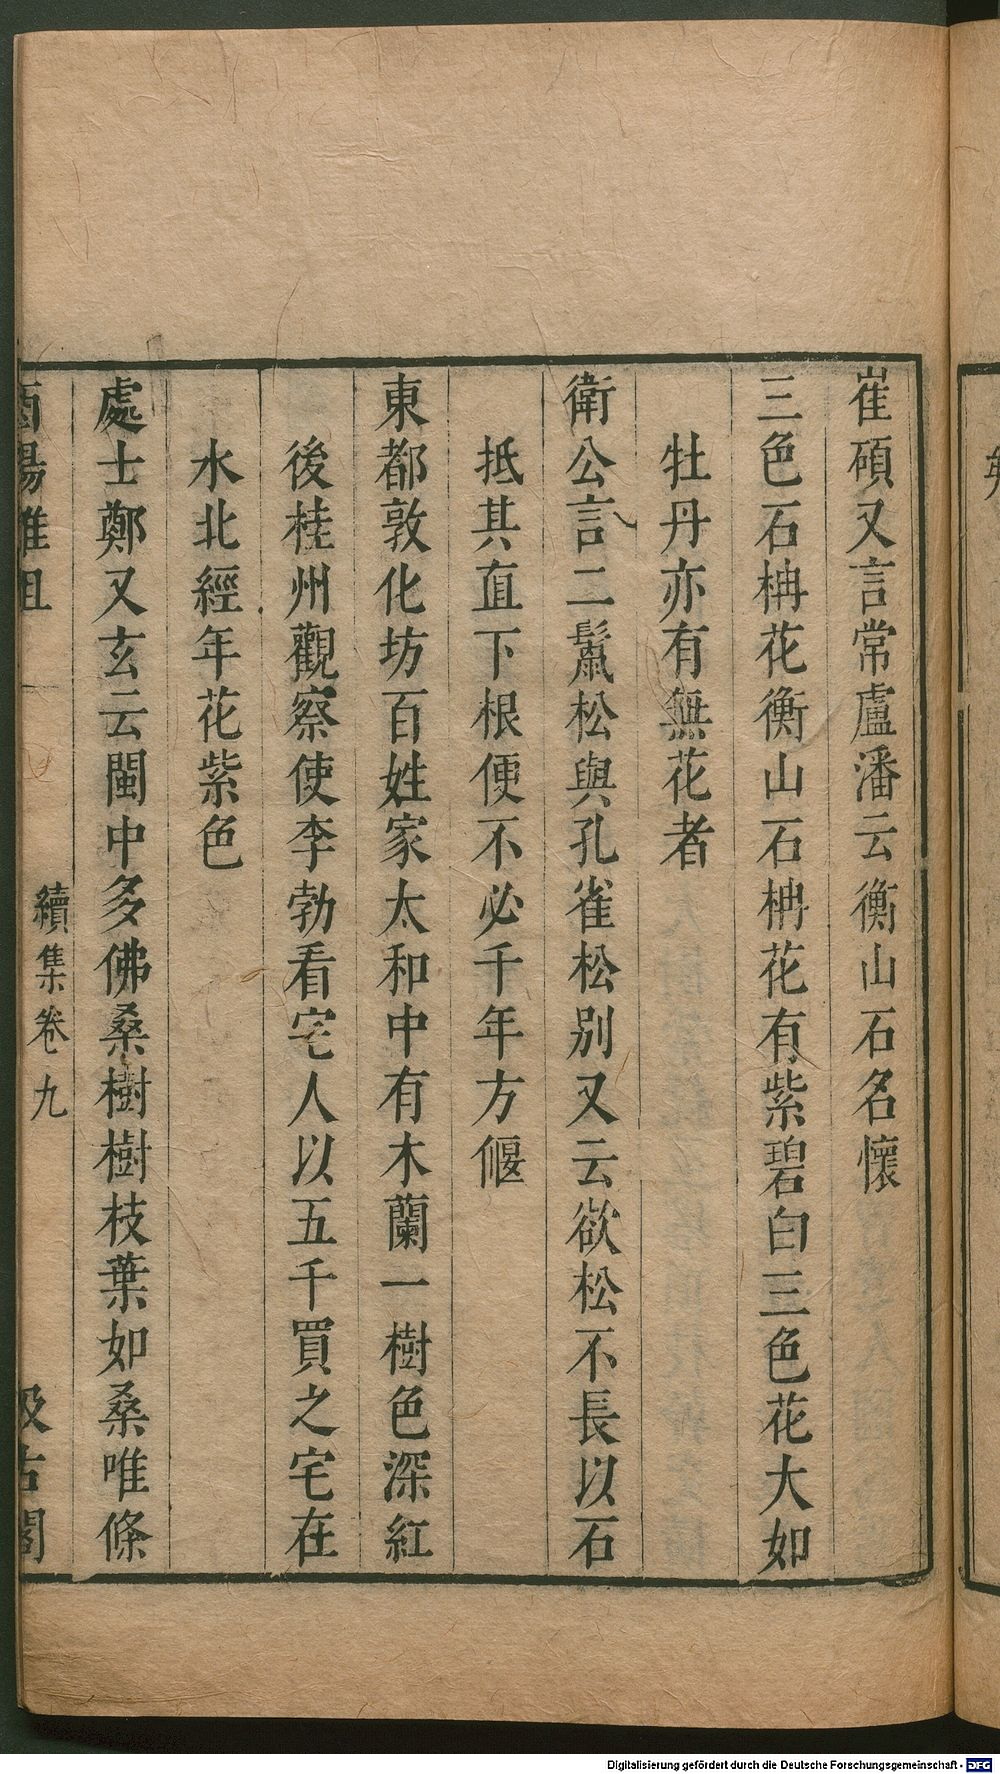 崔碩又言常盧潘云衡山石名懷
三色石柟花衡山石柟花有紫碧白三色花大如
牡丹亦有無花者
衛公言二鬣松與孔雀松别又云欲松不長以石
抵其直下根便不必千年方偃
東都敦化坊百姓家太和中有木蘭一樹色深紅
後桂州觀察使李勃看宅人以五千買之宅在
水北經年花紫色
處士鄭又玄云閩中多佛桑樹樹枝葉如桑唯條
酉陽雜俎
續集卷九
汲古閣
Digitalisierung gefördert durch die Deutsche Forschungsgemeinschaft - DFG